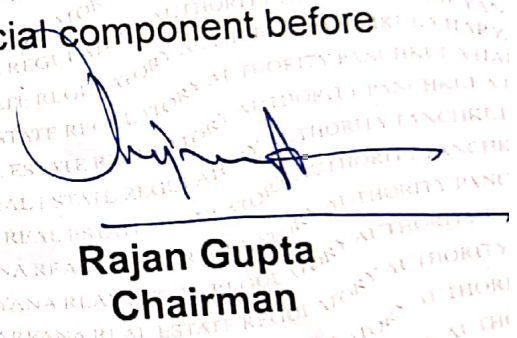 cial component before
Rajan Gupta
Chairman